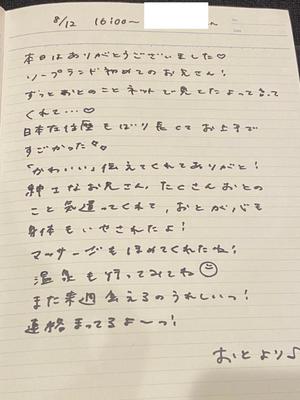 8/12 16:00〜 ん
本日はありがとうございました♡
ソープランド初めてのお兄さん!
ずっとおとのことネットで見てたよって言って
くれて…♡
日本在住歴もばり長くてお上手で
すごかった
「かわいい」伝えてくれてありがと!
紳士なお兄さん、たくさんおとの
こと気遣ってくれて、おとが心も
身体もいやされたよ!
マッサージもほめてくれたね!
温泉も行ってみてね☺
また来週会えるのうれしいっ!
連絡まってるよ〜っ!
おとより♪